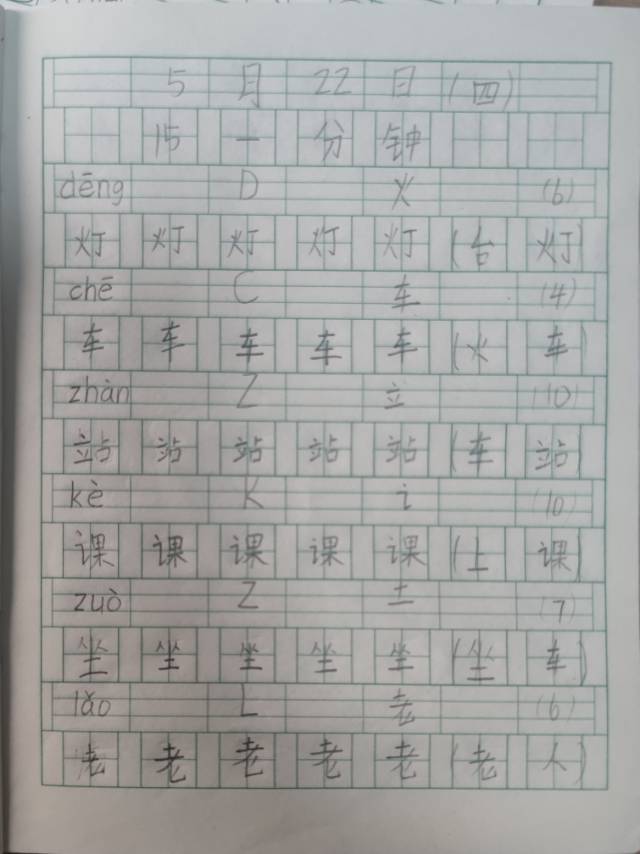 5 月 22 日 (四)
15 一 分 钟
dēng D 火 (6)
灯 灯 灯 灯 灯 (台 灯)
chē C 车 (4)
车 车 车 车 车 (火 车)
zhàn Z 立 (10)
站 站 站 站 站 (车 站)
kè K i (10)
课 课 课 课 课 (上 课)
zuò Z 土 (7)
坐 坐 坐 坐 坐 (坐 车)
lǎo L 老 (6)
老 老 老 老 老 (老 人)